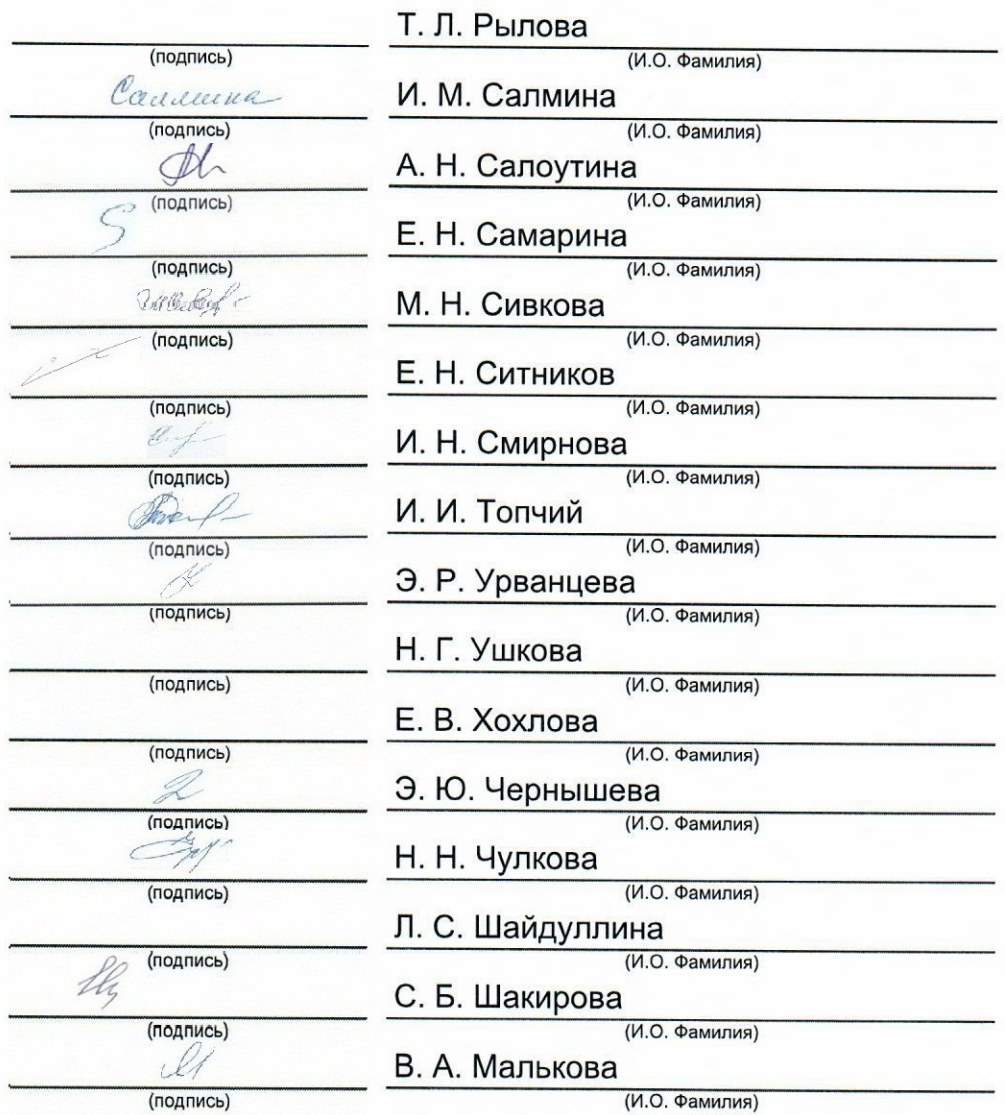 Т. Л. Рылова
(подпись) (И.О. Фамилия)
Салмина И. М. Салмина
(подпись) (И.О. Фамилия)
А. Н. Салоутина
(подпись) (И.О. Фамилия)
Е. Н. Самарина
(подпись) (И.О. Фамилия)
М. Н. Сивкова
(подпись) (И.О. Фамилия)
Е. Н. Ситников
(подпись) (И.О. Фамилия)
И. Н. Смирнова
(подпись) (И.О. Фамилия)
И. И. Топчий
(подпись) (И.О. Фамилия)
Э. Р. Урванцева
(подпись) (И.О. Фамилия)
Н. Г. Ушкова
(подпись) (И.О. Фамилия)
Е. В. Хохлова
(подпись) (И.О. Фамилия)
Э. Ю. Чернышева
(подпись) (И.О. Фамилия)
Н. Н. Чулкова
(подпись) (И.О. Фамилия)
Л. С. Шайдуллина
(подпись) (И.О. Фамилия)
С. Б. Шакирова
(подпись) (И.О. Фамилия)
В. А. Малькова
(подпись) (И.О. Фамилия)